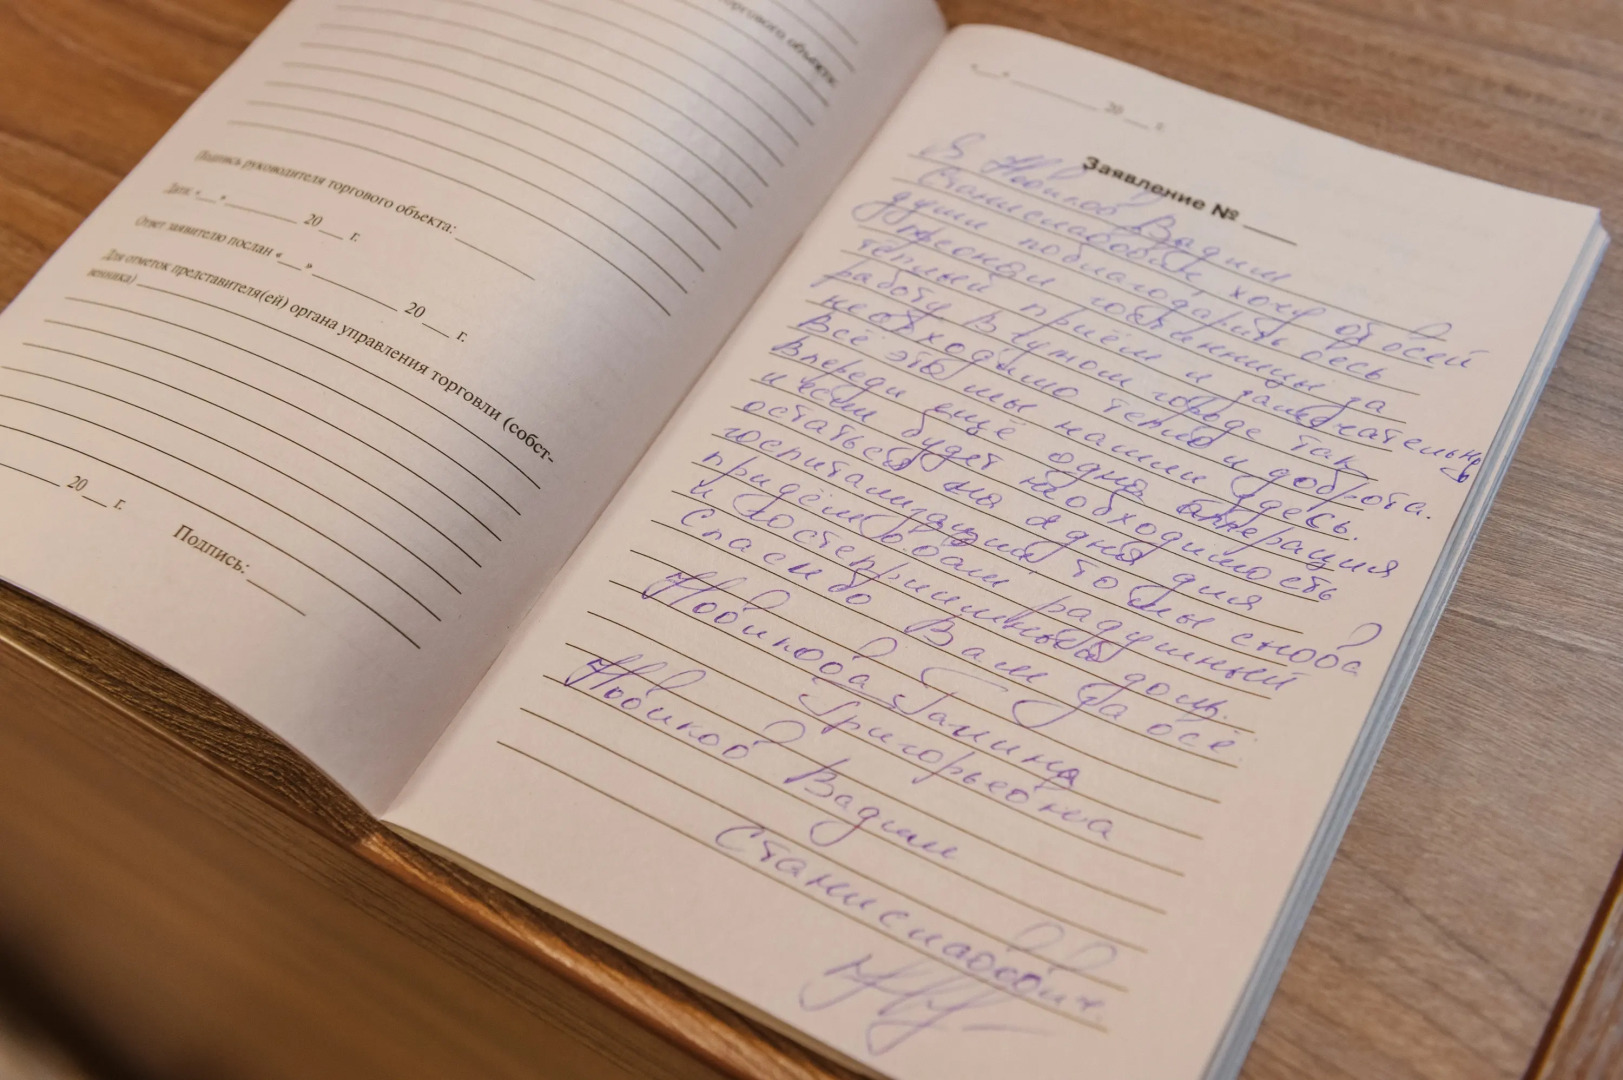 торгового объекта:
Подпись руководителя торгового объекта:
Дата «__» ________ 20___ г.
Ответ заявителю послан «__» ________ 20___ г.
Для отметок представителя(ей) органа управления торговли (собст-
венника)
20___ г.
Подпись:
«__» ________ 20___ г.
Заявление № ____
Я Новиков Вадим
Станиславович хочу от всей
души поблагодарить весь
гостиницы за
тёплый приём и замечательную
работу. В чужом городе так
необходимо тепло и доброта.
Всё это мы нашли здесь.
Впереди ещё одна операция
и если будет необходимость
остаться на 2 дня для
госпитализации то мы снова
придём в Ваш радушный
и гостеприимный дом.
Спасибо Вам за всё
Новикова Галина
Григорьевна
Новиков Вадим
Станиславович.